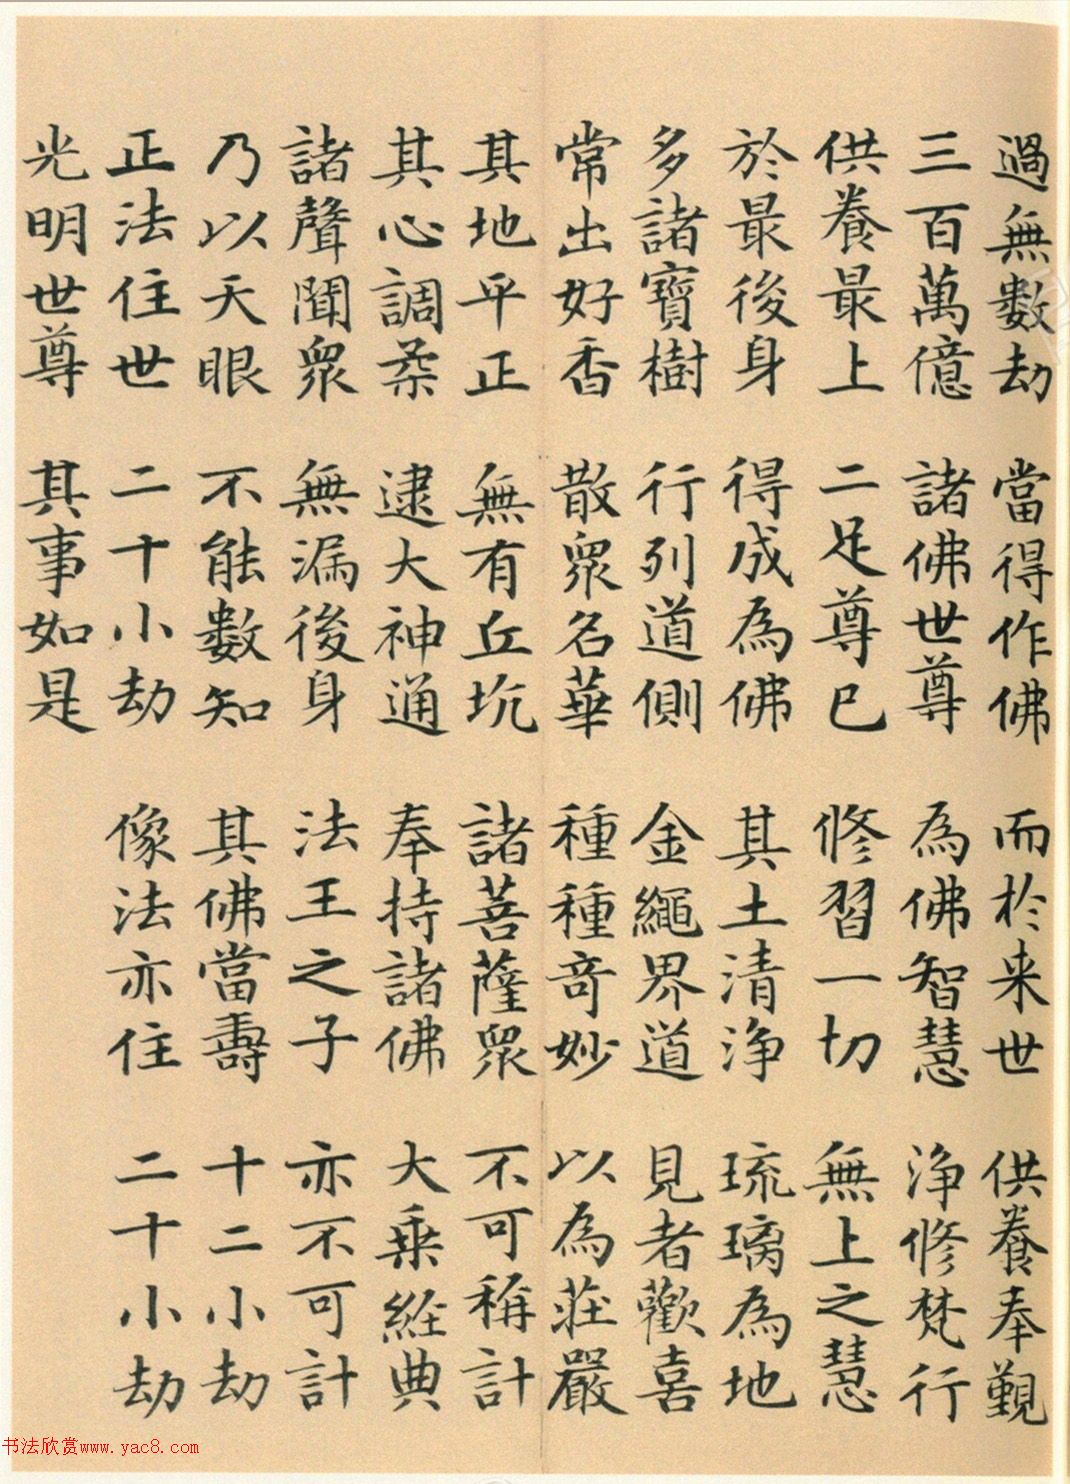 過無數劫 當得作佛 而於来世 供養奉覲
三百萬億 諸佛世尊 為佛智慧 淨修梵行
供養最上 二足尊已 修習一切 無上之慧
於最後身 得成為佛 其土清淨 琉璃為地
多諸寶樹 行列道側 金繩界道 見者歡喜
常出好香 散眾名華 種種奇妙 以為莊嚴
其地平正 無有丘坑 諸菩薩眾 不可稱計
其心調柔 逮大神通 奉持諸佛 大乘經典
諸聲聞眾 無漏後身 法王之子 亦不可計
乃以天眼 不能數知 其佛當壽 十二小劫
正法住世 二十小劫 像法亦住 二十小劫
光明世尊 其事如是
书法欣赏www.yac8.com